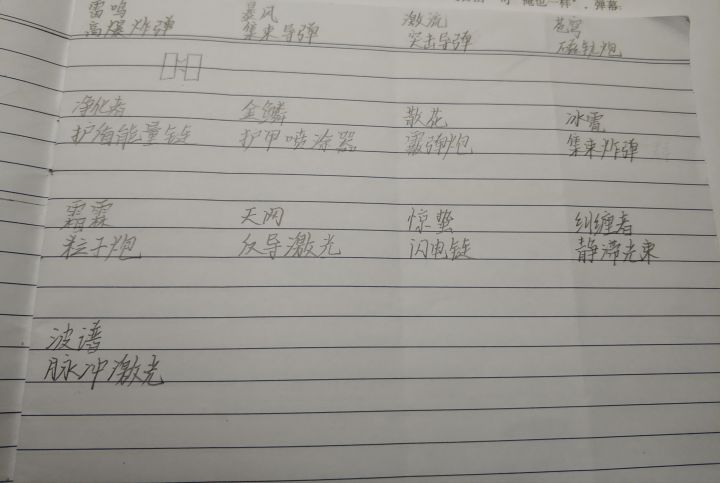 雷鸣 暴风 激流 苍穹
高爆炸弹 集束导弹 突击导弹 磁轨炮
净化者 金鳞 散花 冰雹
护盾能量链 护甲喷涂器 霰弹炮 集束炸弹
霜霖 天网 惊蛰 纠缠者
粒子炮 反导激光 闪电链 静滞光束
波谱
脉冲激光